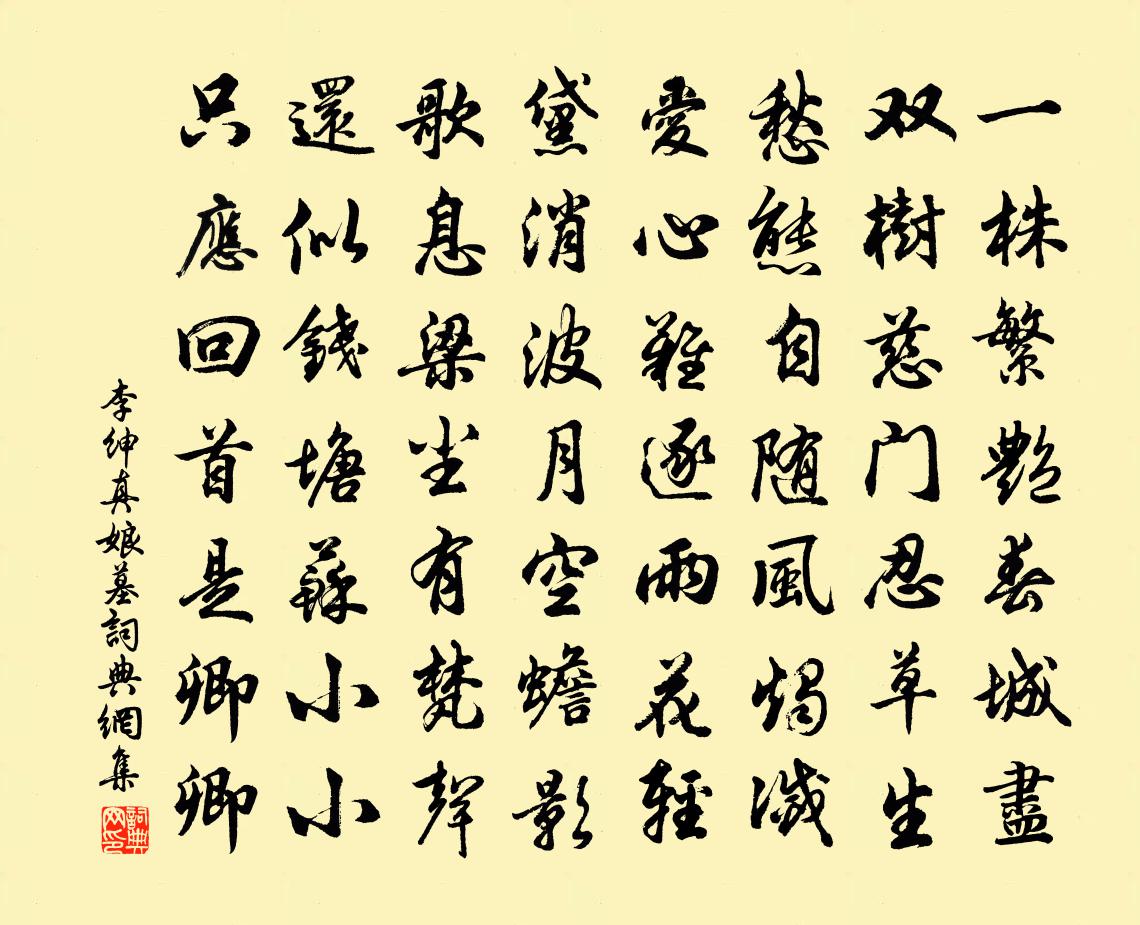 一株繁艷春城盡
双樹慈门忍草生
愁態自随風燭滅
愛心難逐雨花輕
黛消波月空蟾影
歌息梁尘有梵聲
還似錢塘蘇小小
只應回首是卿卿
李紳真娘墓詞典網集
詞典网印